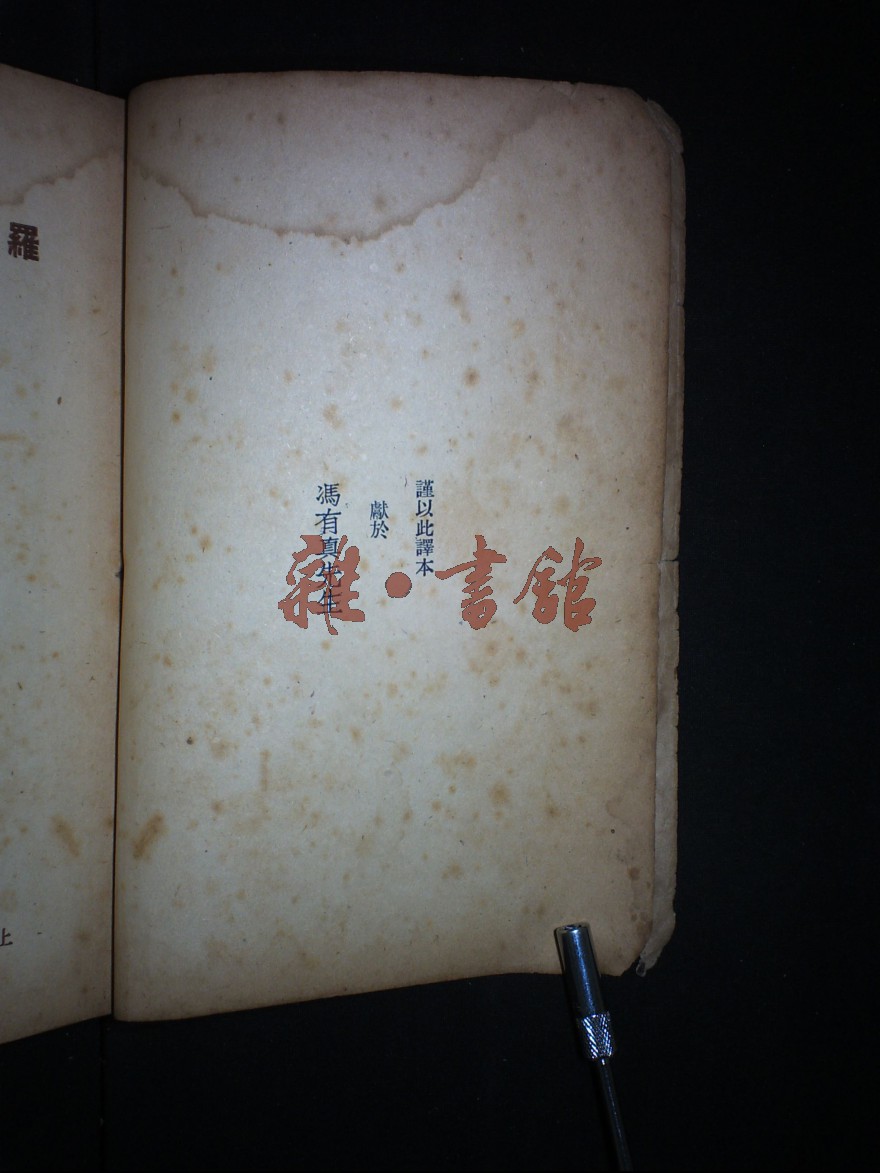 謹以此譯本
獻於
馮有真先生
雜·書館
羅
上